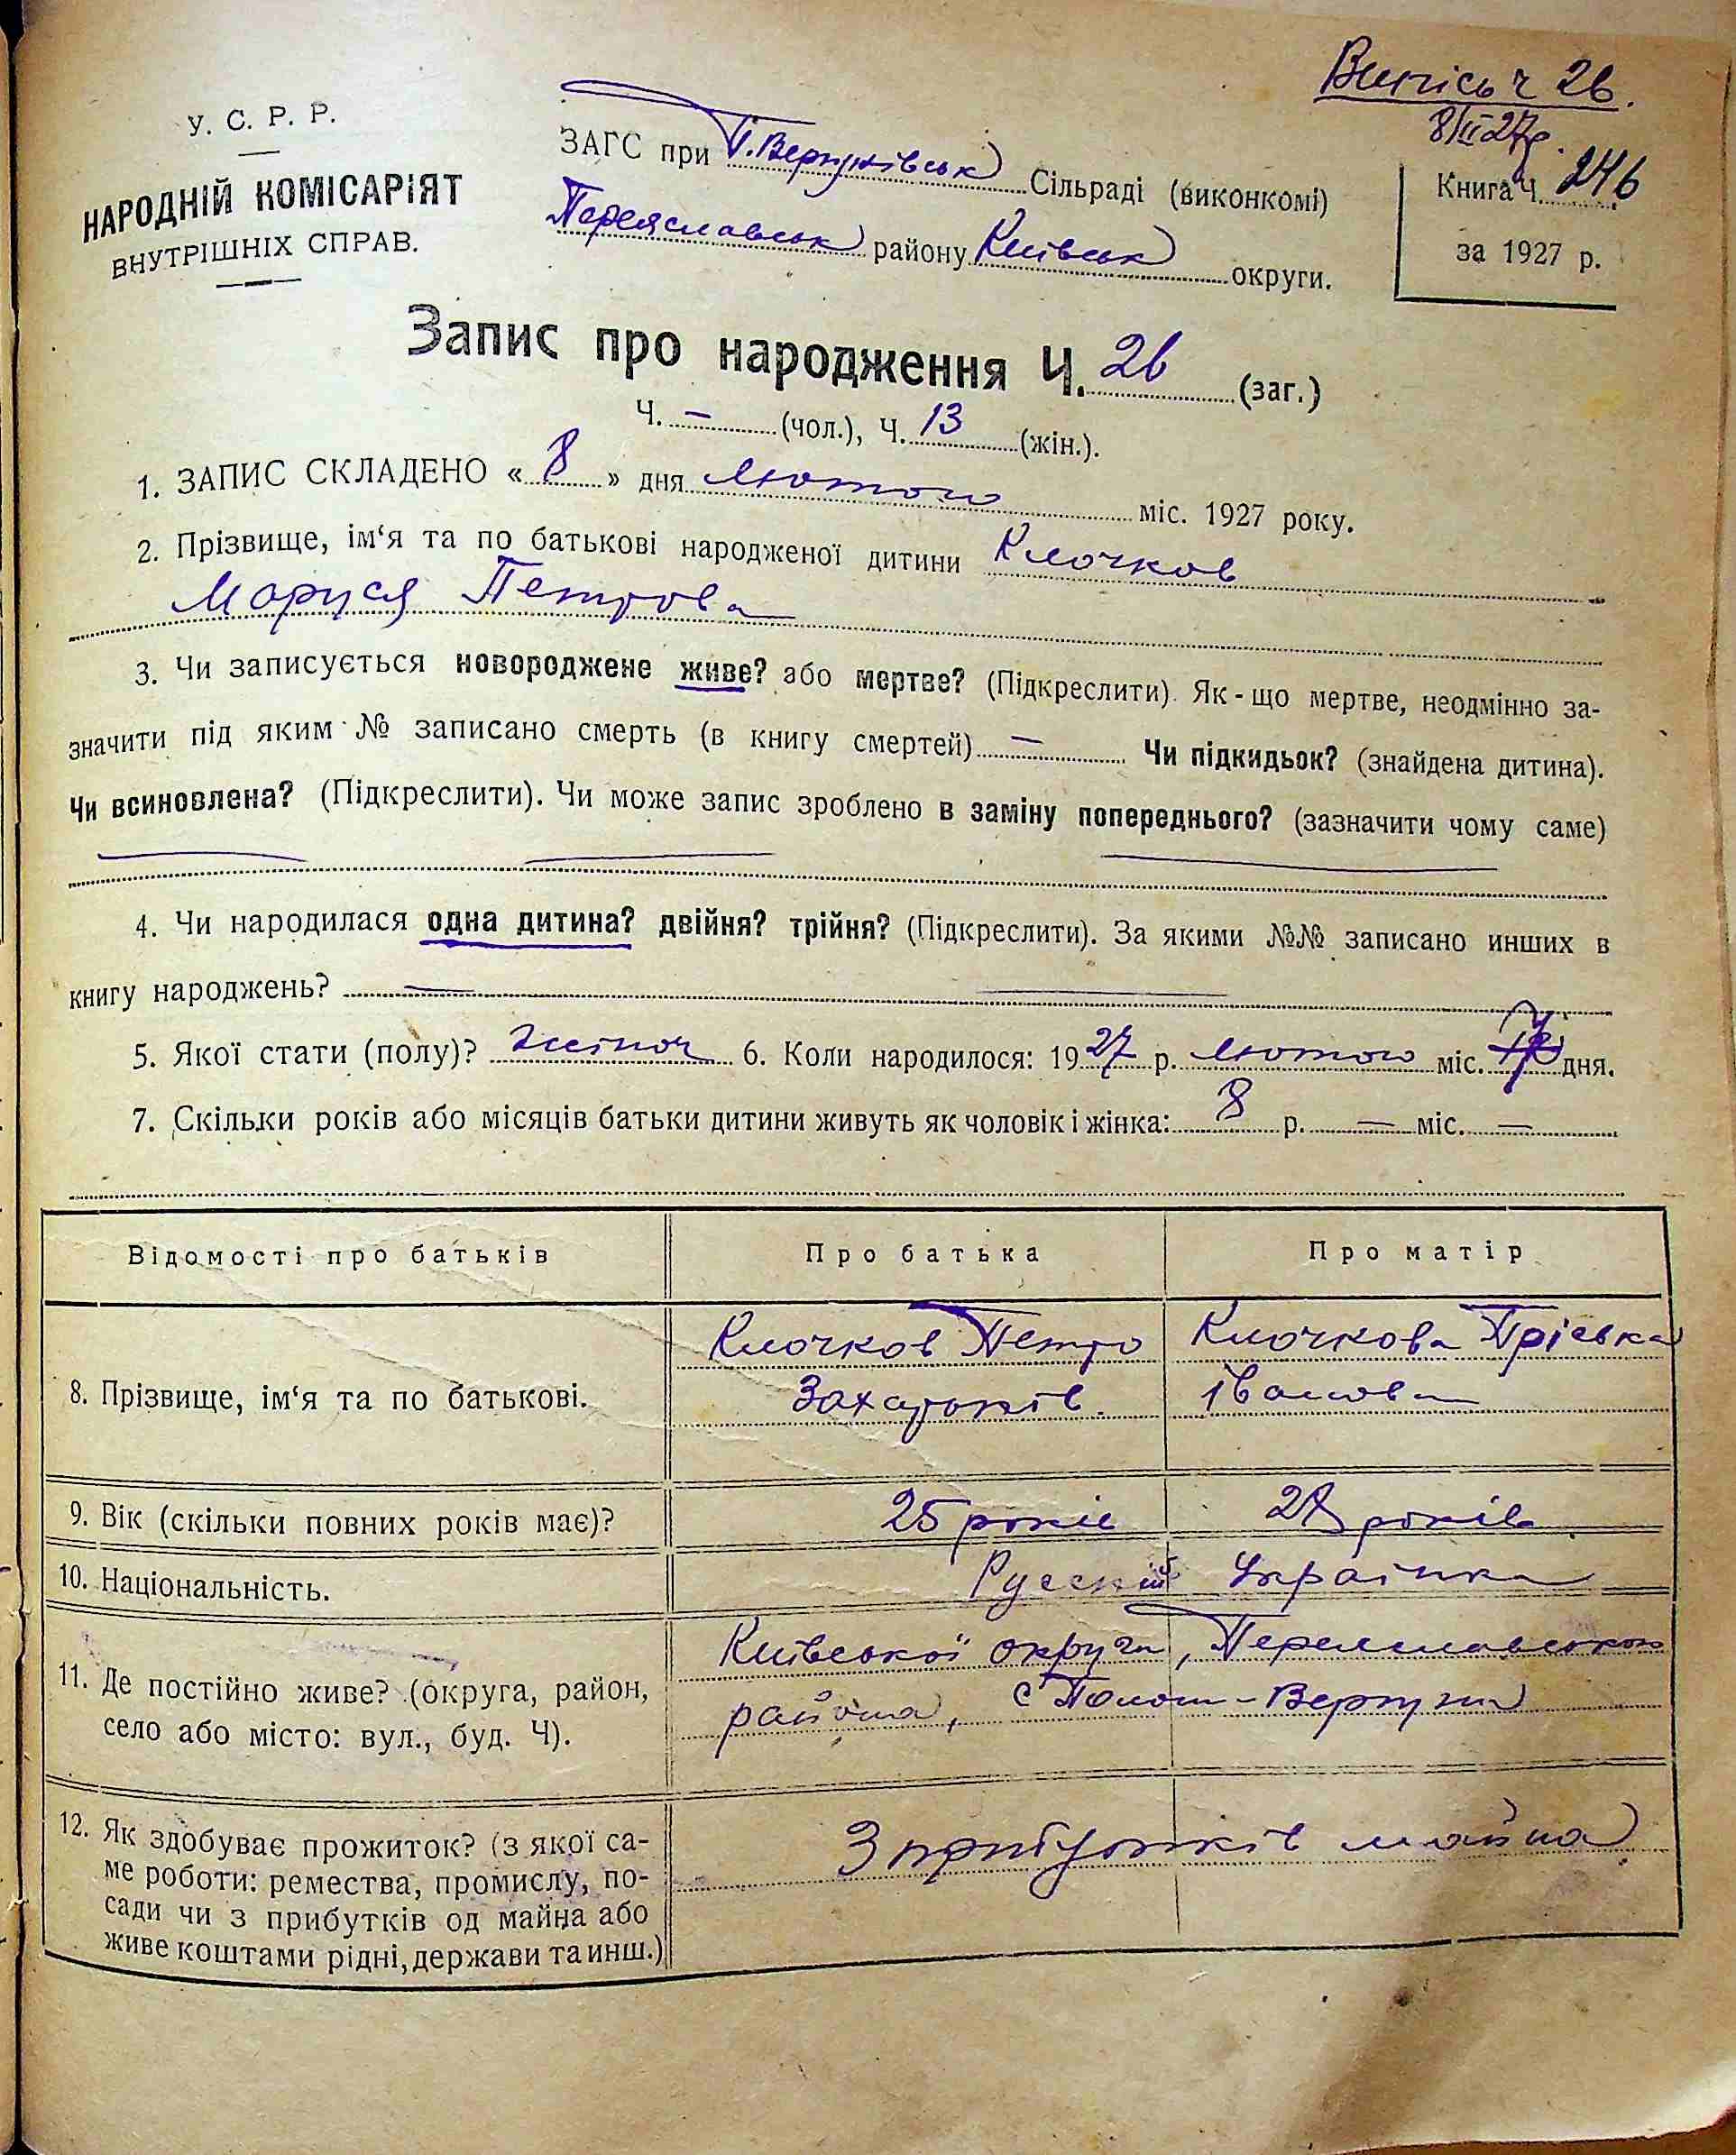 Випісь ч 26.
8/II 27р.
У. С. Р. Р.
НАРОДНІЙ КОМІСАРІЯТ
ВНУТРІШНІХ СПРАВ.
ЗАГС при П.Вергунівськ Сільраді (виконкомі)
Переяславськ району Київськ округи.
Книга Ч. 246
за 1927 р.
Запис про народження Ч. 26 (заг.)
Ч. — (чол.), Ч. 13 (жін.).
1. ЗАПИС СКЛАДЕНО « 8 » дня лютого міс. 1927 року.
2. Прізвище, ім‘я та по батькові народженої дитини Клочков
Маруся Петрова
3. Чи записується новороджене живе? або мертве? (Підкреслити). Як-що мертве, неодмінно за-
значити під яким № записано смерть (в книгу смертей) — Чи підкидьок? (знайдена дитина).
Чи всиновлена? (Підкреслити). Чи може запис зроблено в заміну попереднього? (зазначити чому саме)
4. Чи народилася одна дитина? двійня? трійня? (Підкреслити). За якими №№ записано инших в
книгу народжень? — —
5. Якої стати (полу)? жіноч 6. Коли народилося: 1927 р. лютого міс. 7 дня.
7. Скільки років або місяців батьки дитини живуть як чоловік і жінка: 8 р. — міс. —
Відомості про батьків Про батька Про матір
8. Прізвище, ім‘я та по батькові.
Клочков Петро
Захарьків
Клочкова Пріська
Іванова
9. Вік (скільки повних років має)? 25 років 27 років
10. Національність. Русский Українка
11. Де постійно живе? (округа, район,
село або місто: вул., буд. Ч).
Київської округи, Переяславського
района, с Полог-Вергуни
12. Як здобуває прожиток? (з якої са-
ме роботи: ремества, промислу, по-
сади чи з прибутків од майна або
живе коштами рідні, держави та инш.)
З прибутків майна